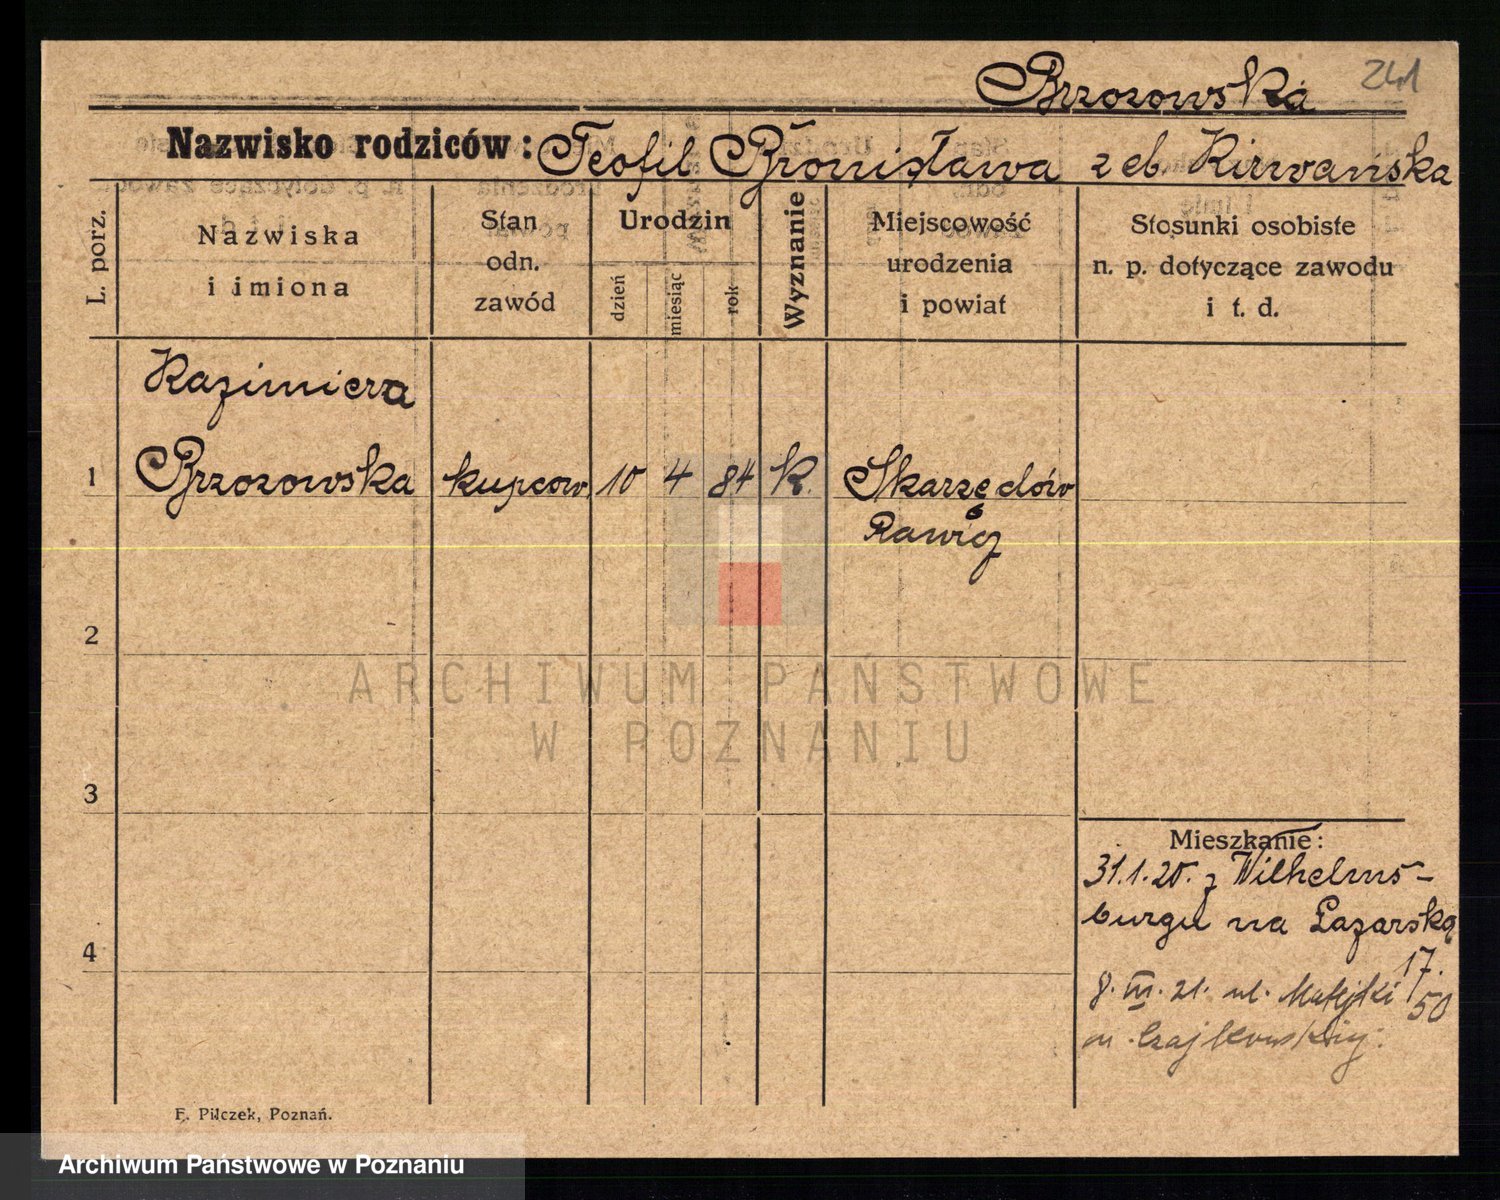 Brzozowska 241
Nazwisko rodziców: Teofil Bronisława z eb. Kirwańska
L. porz.
Nazwiska i imiona
Stan odn. zawód
Urodzin
dzień
miesiąc
rok
Wyznanie
Miejscowość urodzenia i powiat
Stosunki osobiste n. p. dotyczące zawodu i t. d.
Kazimiera
1 Brzozowska kupcow. 10 4 84 K. Skarzędów
Rawicz
2
ARCHIWUM PAŃSTWOWE
W POZNANIU
3
Mieszkanie:
31.1.20. z Wilhelms-
burgu na Łazarską
17.
4
8. III. 21. ul. Matejki 50
F. Pilczek, Poznań.
Archiwum Państwowe w Poznaniu